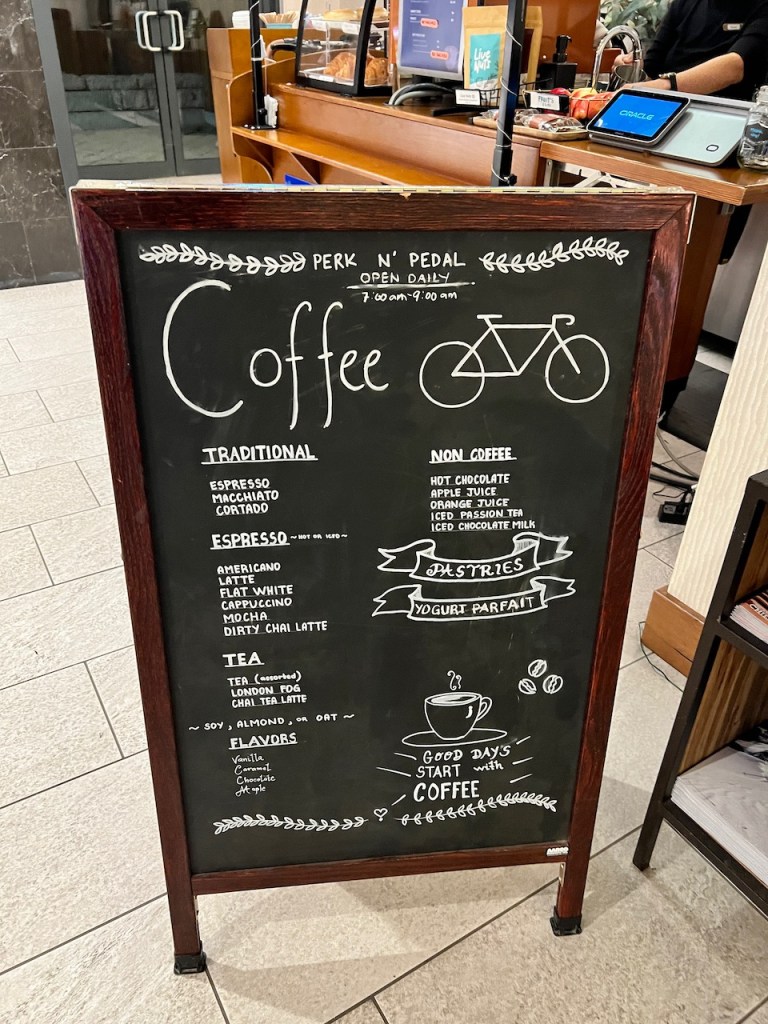 Live
Nuts
ORACLE
PERK N' PEDAL
OPEN DAILY
7:00am-9:00am
Coffee
TRADITIONAL
ESPRESSO
MACCHIATO
CORTADO
ESPRESSO ~HOT OR ICED~
AMERICANO
LATTE
FLAT WHITE
CAPPUCCINO
MOCHA
DIRTY CHAI LATTE
TEA
TEA (assorted)
LONDON FOG
CHAI TEA LATTE
~ SOY, ALMOND, OR OAT ~
FLAVORS
Vanilla
Caramel
Chocolate
Maple
NON COFFEE
HOT CHOCOLATE
APPLE JUICE
ORANGE JUICE
ICED PASSION TEA
ICED CHOCOLATE MILK
PASTRIES
YOGURT PARFAIT
GOOD DAY'S
START with
COFFEE